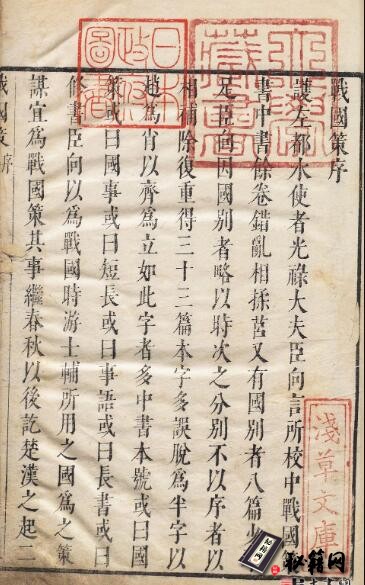 戰國策序
護左都水使者光祿大夫臣向言所校中戰國
書中書餘卷錯亂相揉莒又有國別者八篇少
足臣向因國別者略以時次之分別不以序者以
相補除復重得三十三篇本字多誤脫為半字以
趙為肖以齊為立如此字者多中書本號或曰國
策或曰國事或曰短長或曰事語或曰長書或曰
修書臣向以為戰國時游士輔所用之國為之策
謀宜為戰國策其事繼春秋以後訖楚漢之起二
戰國策序
藏書
日本政府圖書
淺草文庫
秘籍网